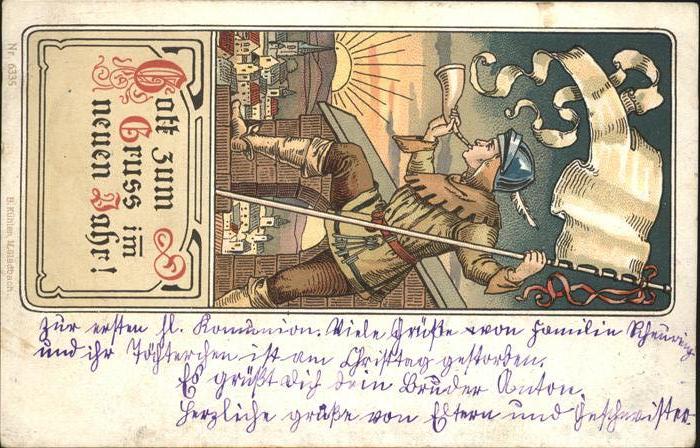 Nr. 6335
Gott zum
Gruss im
neuen Jahr!
B. Kühlen, M.Gladbach.
zur ersten hl. Komunion. Viele Grüße von Familie
und ihr Töchterchen ist am Christtag gestorben.
Es grüßt Dich dein Bruder Anton.
Herzliche grüße von Eltern und Geschwister